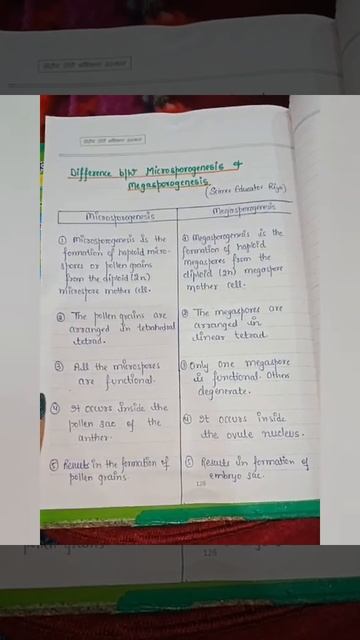 Difference b/w Microsporogenesis &
Megasporogenesis.
(Science Educator Riya)
Microsporogenesis
① Microsporogenesis is the
formation of haploid micro-
spores or pollen grains
from the diploid (2n)
microspore mother cell.
② The pollen grains are
arranged in tetrahedral
tetrad.
③ All the microspores
are functional.
④ It occurs inside the
pollen sac of the
anther.
⑤ Results in the formation of
pollen grains.
Megasporogenesis
① Megasporogenesis is the
formation of haploid
megaspores from the
diploid (2n) megaspore
mother cell.
② The megaspores are
arranged in
linear tetrad.
③ Only one megaspore
is functional. Others
degenerate.
④ It occurs inside
the ovule nucleus.
⑤ Results in formation of
embryo sac.
126
pollen grains.
126